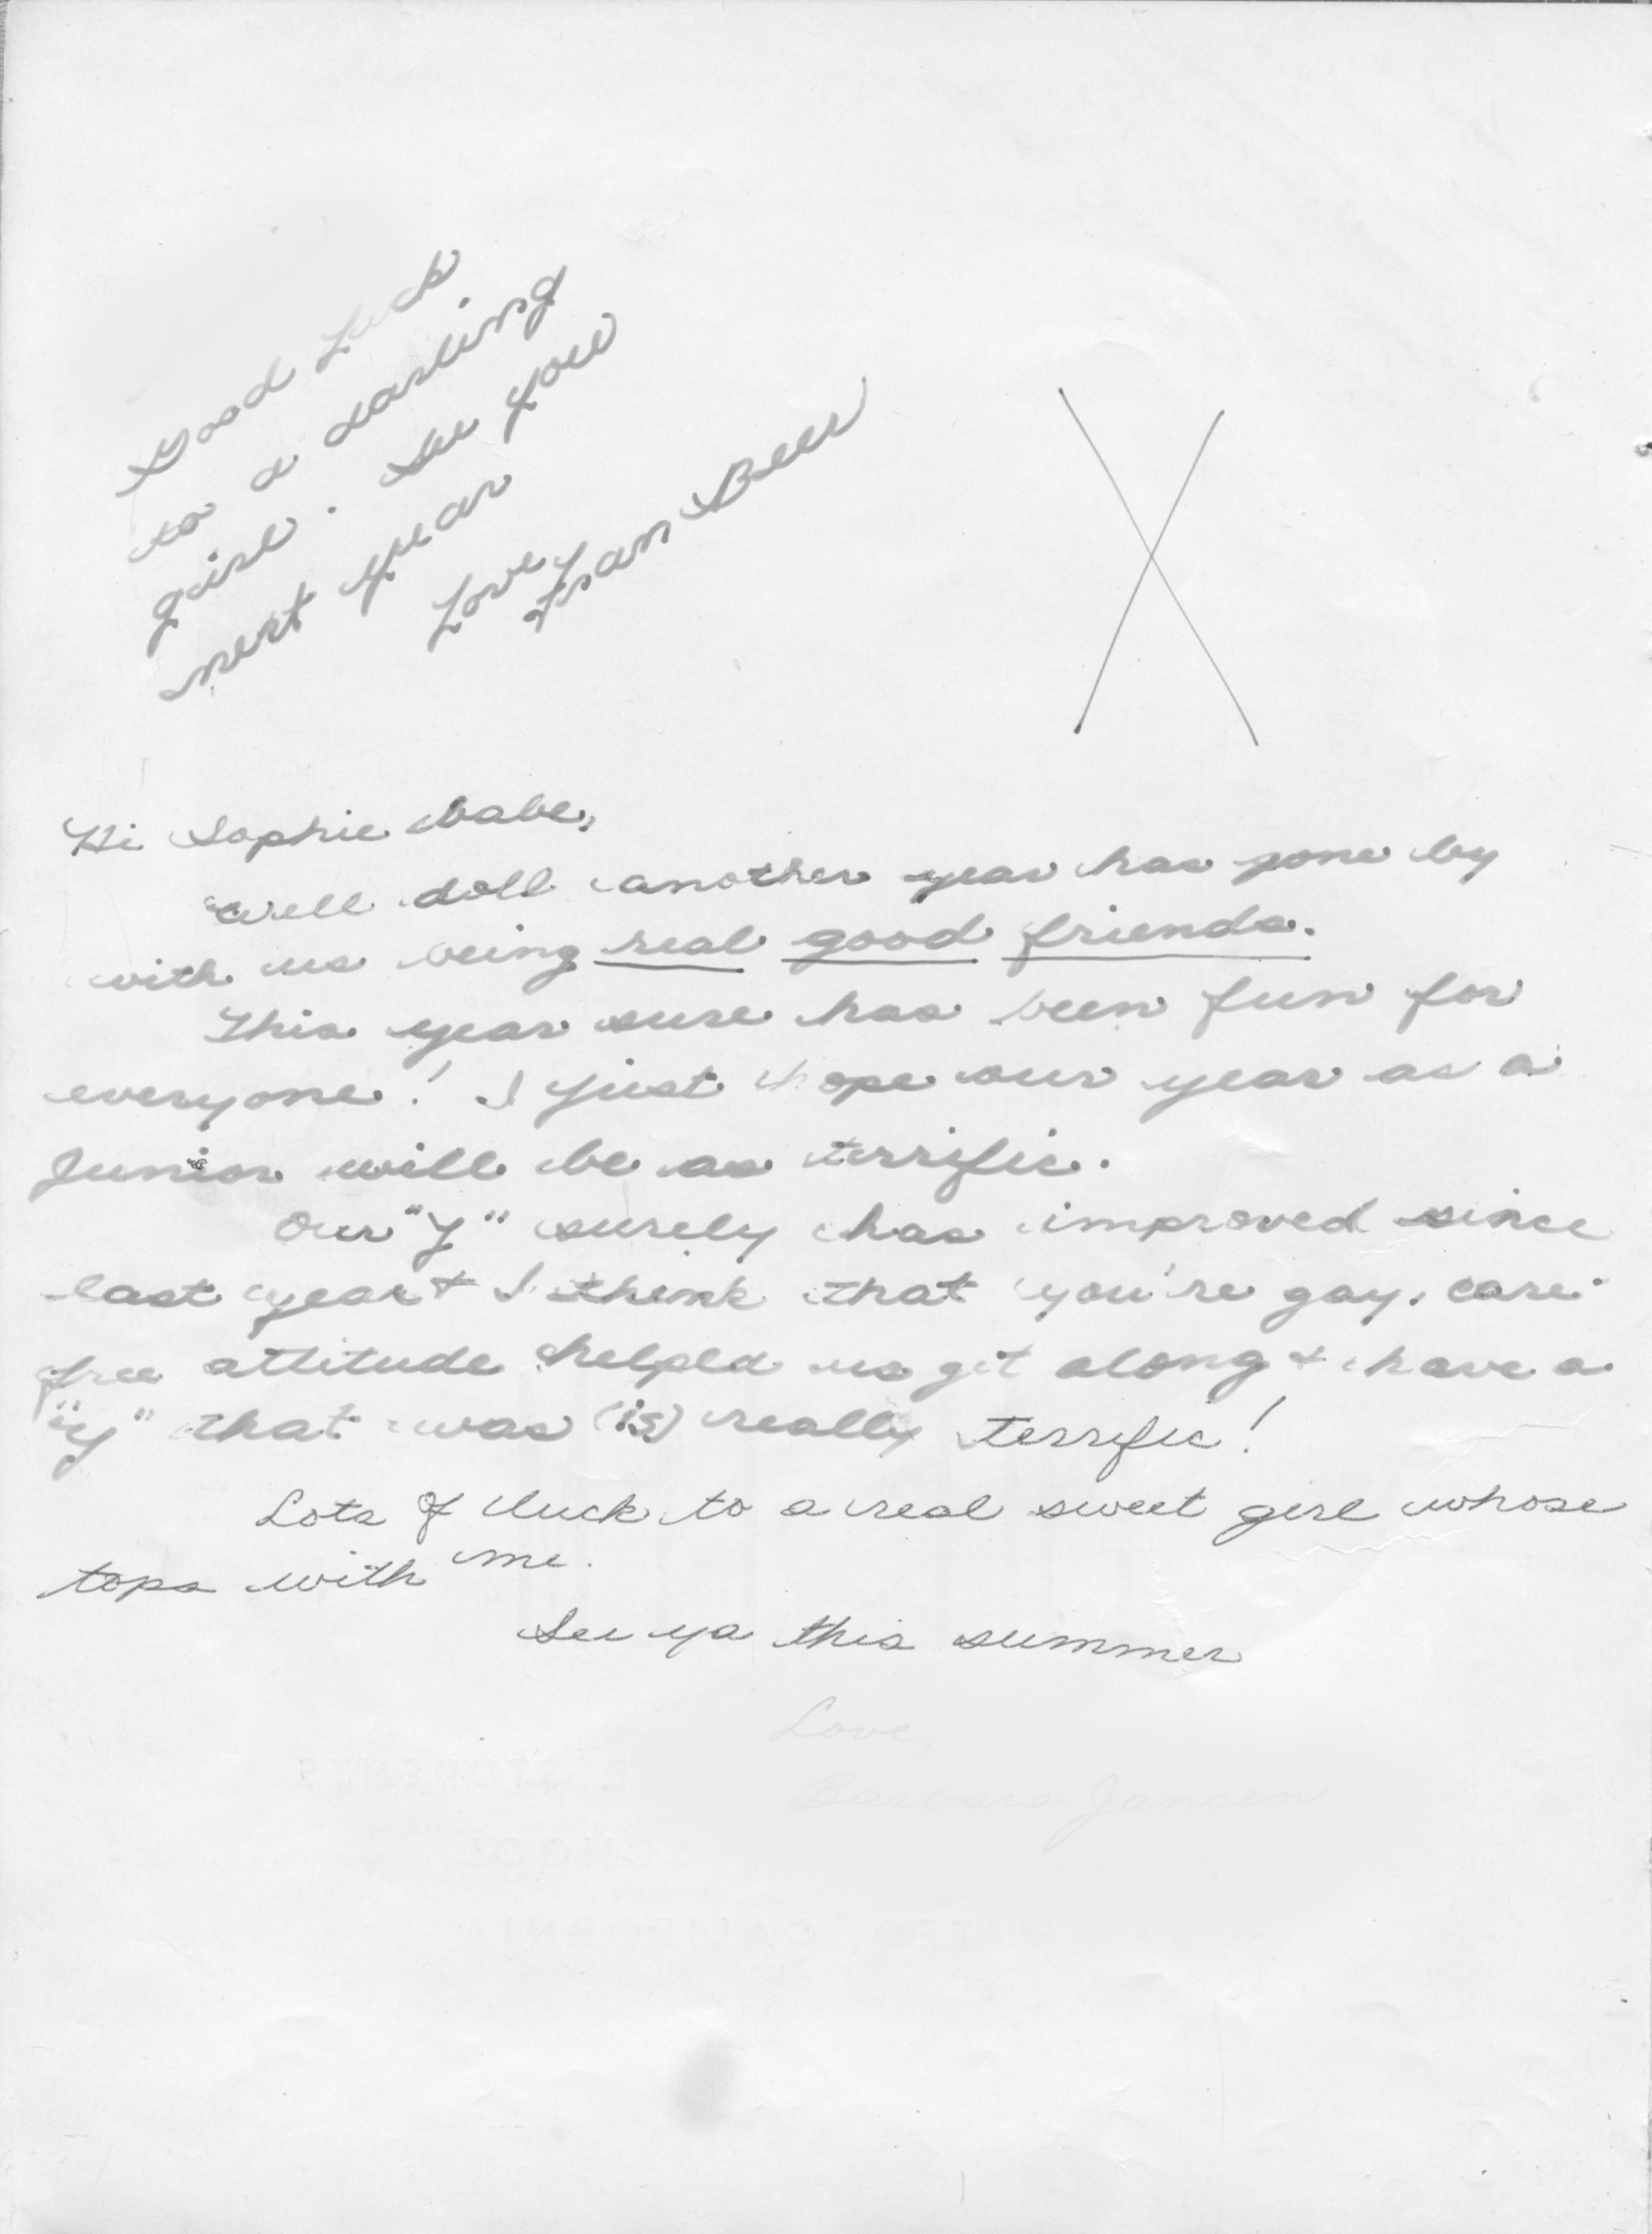 Good Luck
to a darling
girl. See you
next year
Love,
Fran Beer
Hi Sophie babe,
Well doll another year has gone by
with us being real good friends.
This year sure has been fun for
everyone! I just hope our year as a
Junior will be as terrific.
Our "Y" surely has improved since
last year + I think that you're gay, care-
free attitude helped us get along + have a
"Y" that was (is) really terrific!
Lots of luck to a real sweet girl whose
tops with me.
See ya this summer
Love,
Barbara Jansen